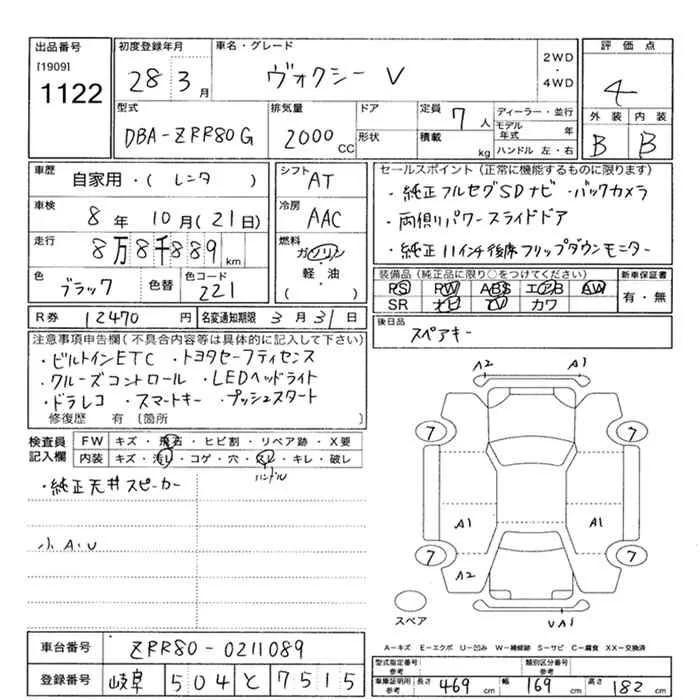 出品番号 [1909] 1122
初度登録年月 28 3月
車名・グレード ヴォクシー V
2WD・4WD
評価点 4
外装 B 内装 B
型式 DBA-ZRR80G
排気量 2000 CC
ドア 形状
定員 7人 積載 kg
ディーラー・並行
モデル年式 年
ハンドル 左・右
車歴 自家用・( レンタ )
シフト AT
車検 8年10月(21日)
冷房 AAC
走行 8万8千889 km
燃料 ガソリン・軽・油 ( )
色 ブラック 色替 色コード 221
R券 12470円 名変通知期限 3月31日
セールスポイント(正常に機能するものに限ります)
・純正フルセグSDナビ・バックカメラ
・両側パワースライドドア
・純正11インチ後席フリップダウンモニター
装備品(純正品に限り○をつけてください) 新車保証書
PS PW ABS エアB AW 有・無
SR ナビ TV カワ
後日品
スペアキー
注意事項申告欄(不具合内容等は具体的に記入して下さい)
・ビルトインETC ・トヨタセーフティセンス
・クルーズコントロール ・LEDヘッドライト
・ドラレコ ・スマートキー ・プッシュスタート
修復歴 有〔箇所 〕
検査員記入欄 FW キズ・飛石・ヒビ割・リペア跡・X要
内装 キズ・汚れ・コゲ・穴・スレ・キレ・破レ
ハンドル
・純正天井スピーカー
小A・U
A2 A1
7 7
A1 A1
7 7
A2
スペア
UA1
A-キズ E-エクボ U-凹み W-補修跡 S-サビ C-腐食 XX-交換済
車台番号 ZRR80-0211089
登録番号 岐阜 504 と 7515
型式指定番号 参考 類別区分番号 参考
車庫証明用 参考 長さ 469 cm 幅 169 cm 高さ 182 cm